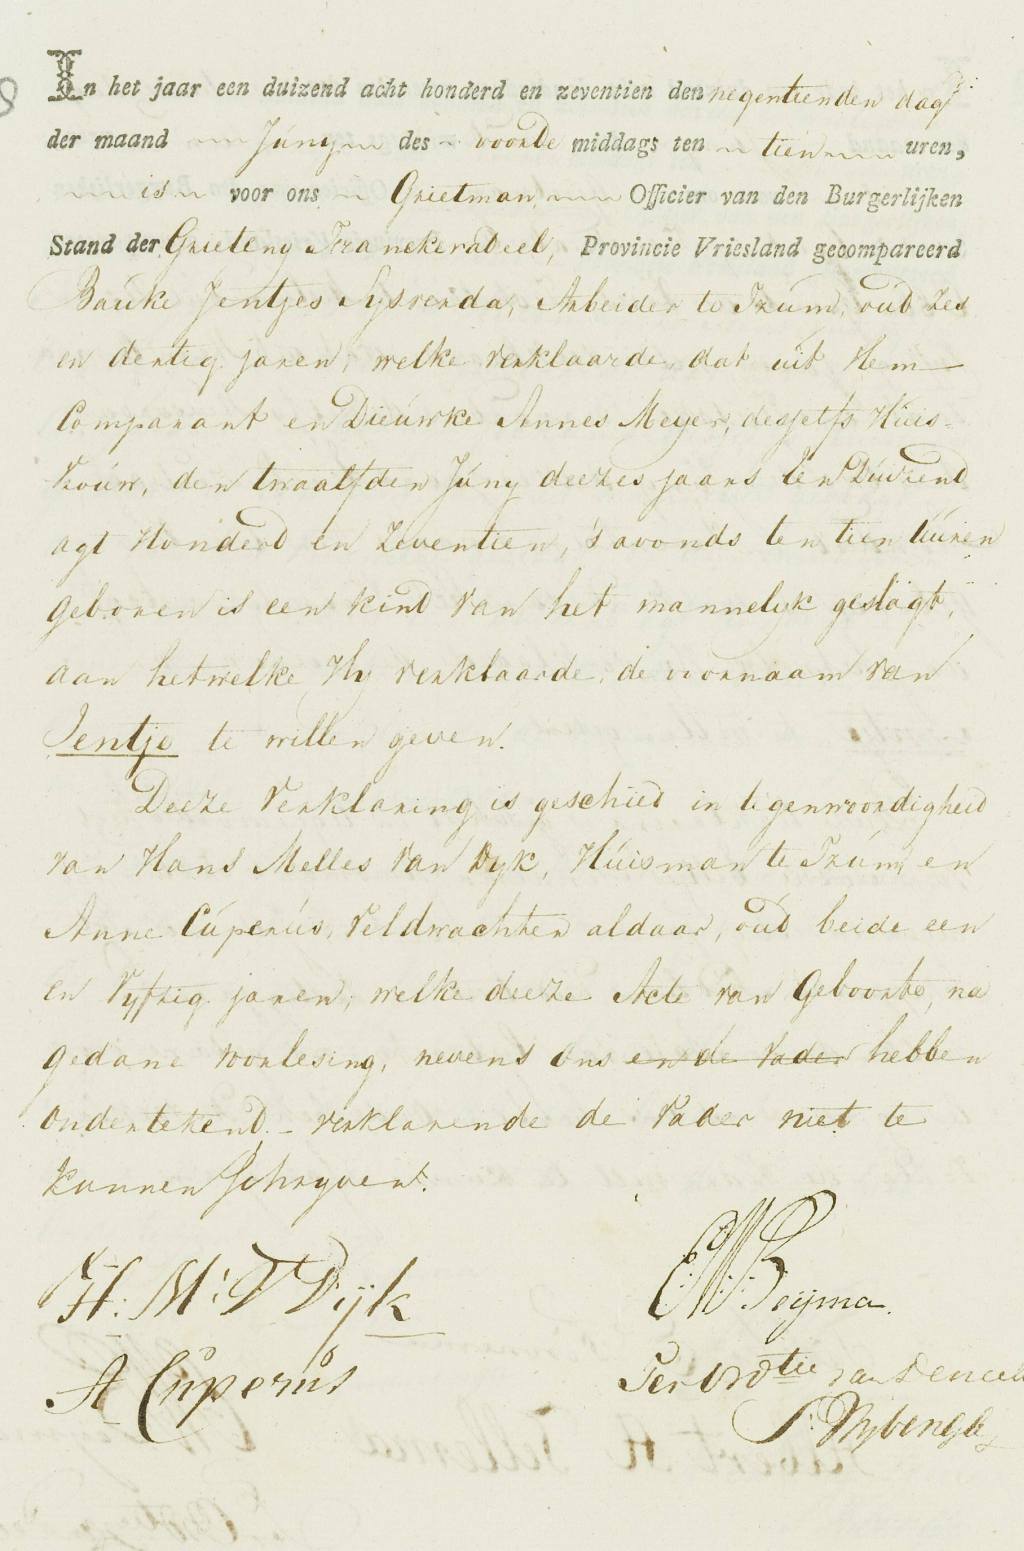 In het jaar een duizend acht honderd en zeventien den negentienden dag
der maand Júny des voorde middags ten tien uren,
is voor ons Grietman Officier van den Burgerlijken
Stand der Grieteny Franekeradeel, Provincie Vriesland gecompareerd
Bauke Jentjes Sysrenda, Arbeider te Tzum, oud zes
en dertig jaren, welke verklaarde, dat uit Hem
Comparant en Dieúwke Annes Meyer, deszelfs Húis-
vroúw, den twaalfden Júny deezes jaars een Dúizend
agt Honderd en Zeventien, 's avonds ten tien úúren
geboren is een kind van het mannelyk geslagt,
aan hetwelke Hy verklaarde, de voornaam van
Jentje te willen geven.
Deeze Verklaring is geschied in tegenwoordigheid
van Hans Melles van Dyk, Húisman te Tzúm, en
Anne Cúperús, Veldwachter aldaar, oud beide een
en vyftig jaren, welke deeze Acte van Geboorte, na
gedane voorlesing, nevens ons en de vader hebben
ondertekend. - verklarende de vader niet te
kunnen Schryven.
H: M: V Dijk
A Cuperus